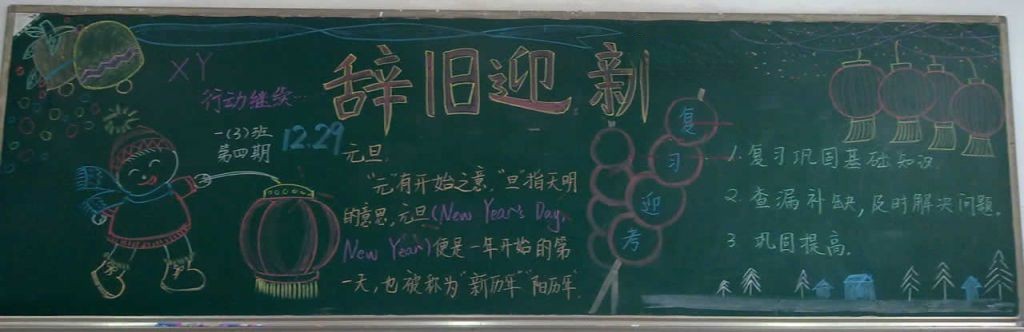 XY
行动继续…
辞旧迎新
一(3)班
第四期
12.29
元旦.
"元"有开始之意,"旦"指天明
的意思.元旦(New Year's Day,
New Year)便是一年开始的第
一天,也被称为"新历年""阳历年".
复
习
迎
考
1. 复习巩固基础知识.
2. 查漏补缺,及时解决问题.
3. 巩固提高.